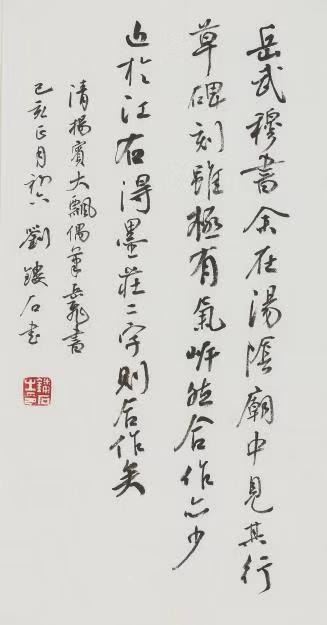 岳武穆書余在湯陰廟中見其行
草碑刻雖極有氣岸然合作亦少
近於江右得墨莊二字則合作矣
清楊賓大瓢偶筆岳飛書
己亥正月初六劉鏤石書